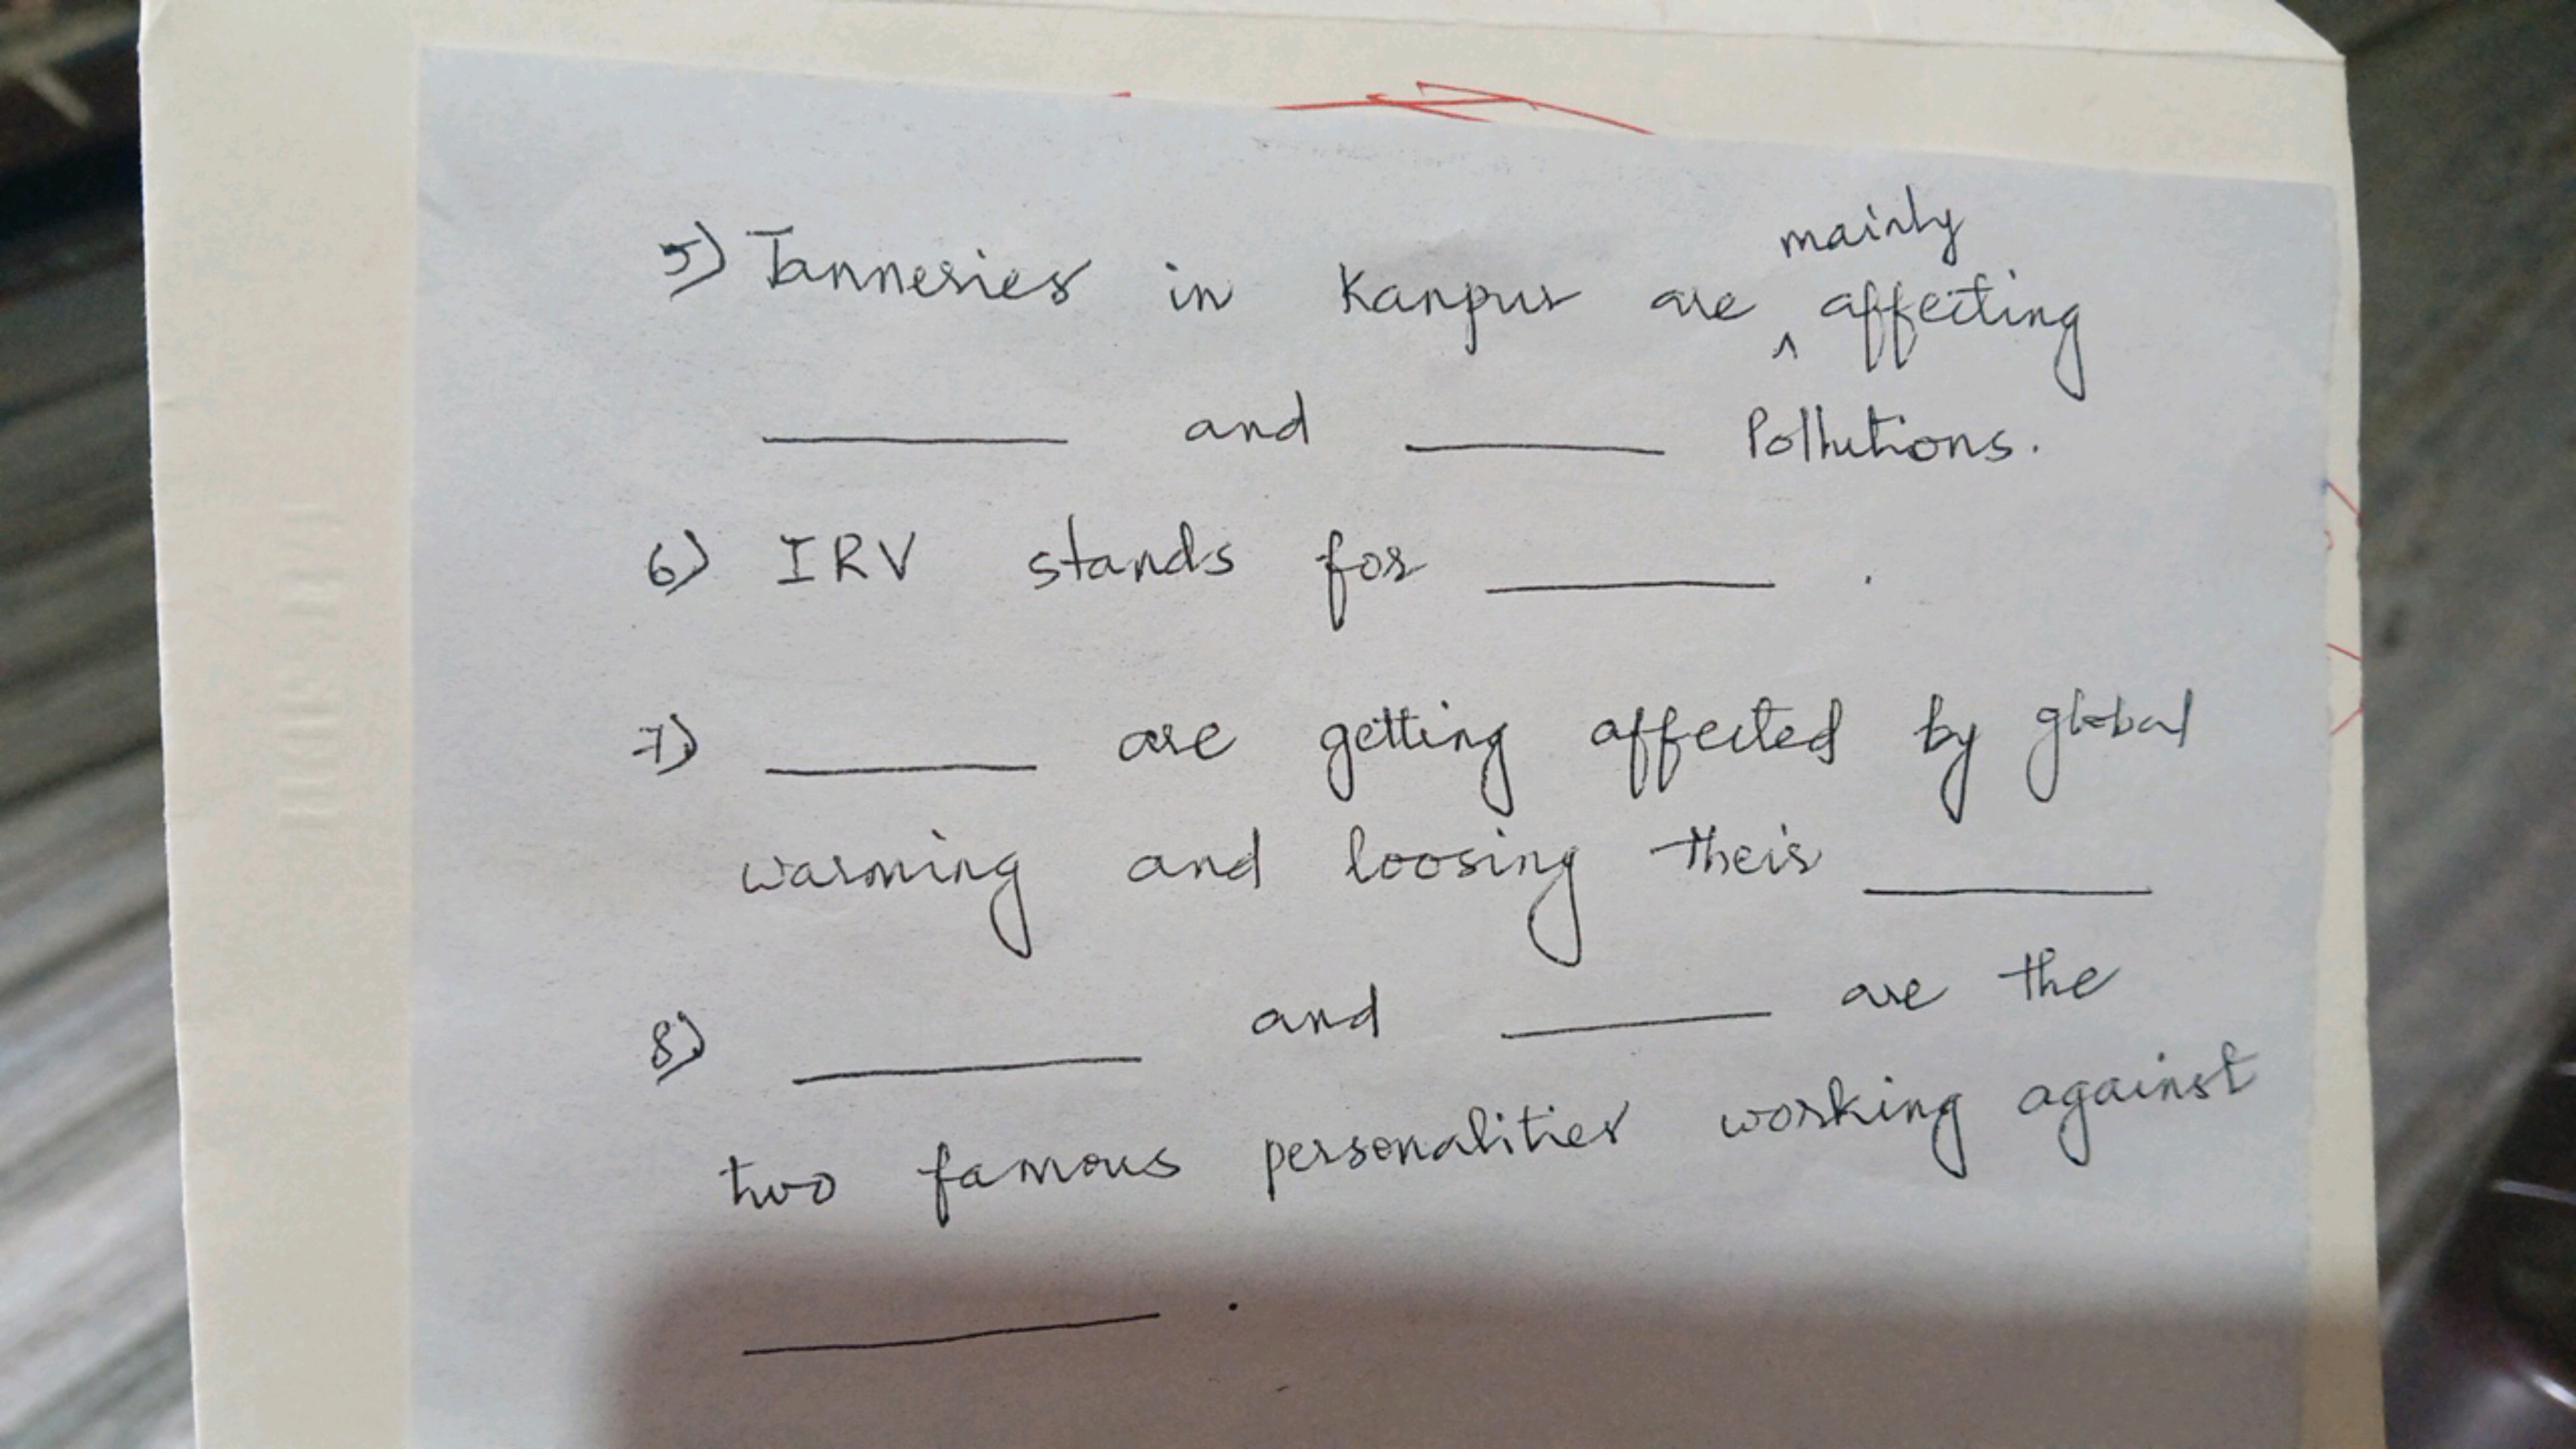 5) Tanneries in Kanpur are ^ mainly affecting
_______ and _______ Pollutions.
6) IRV stands for _______ .
7) _______ are getting affected by global
warming and loosing their _______
8) _______ and _______ are the
two famous personalities working against
_______ .